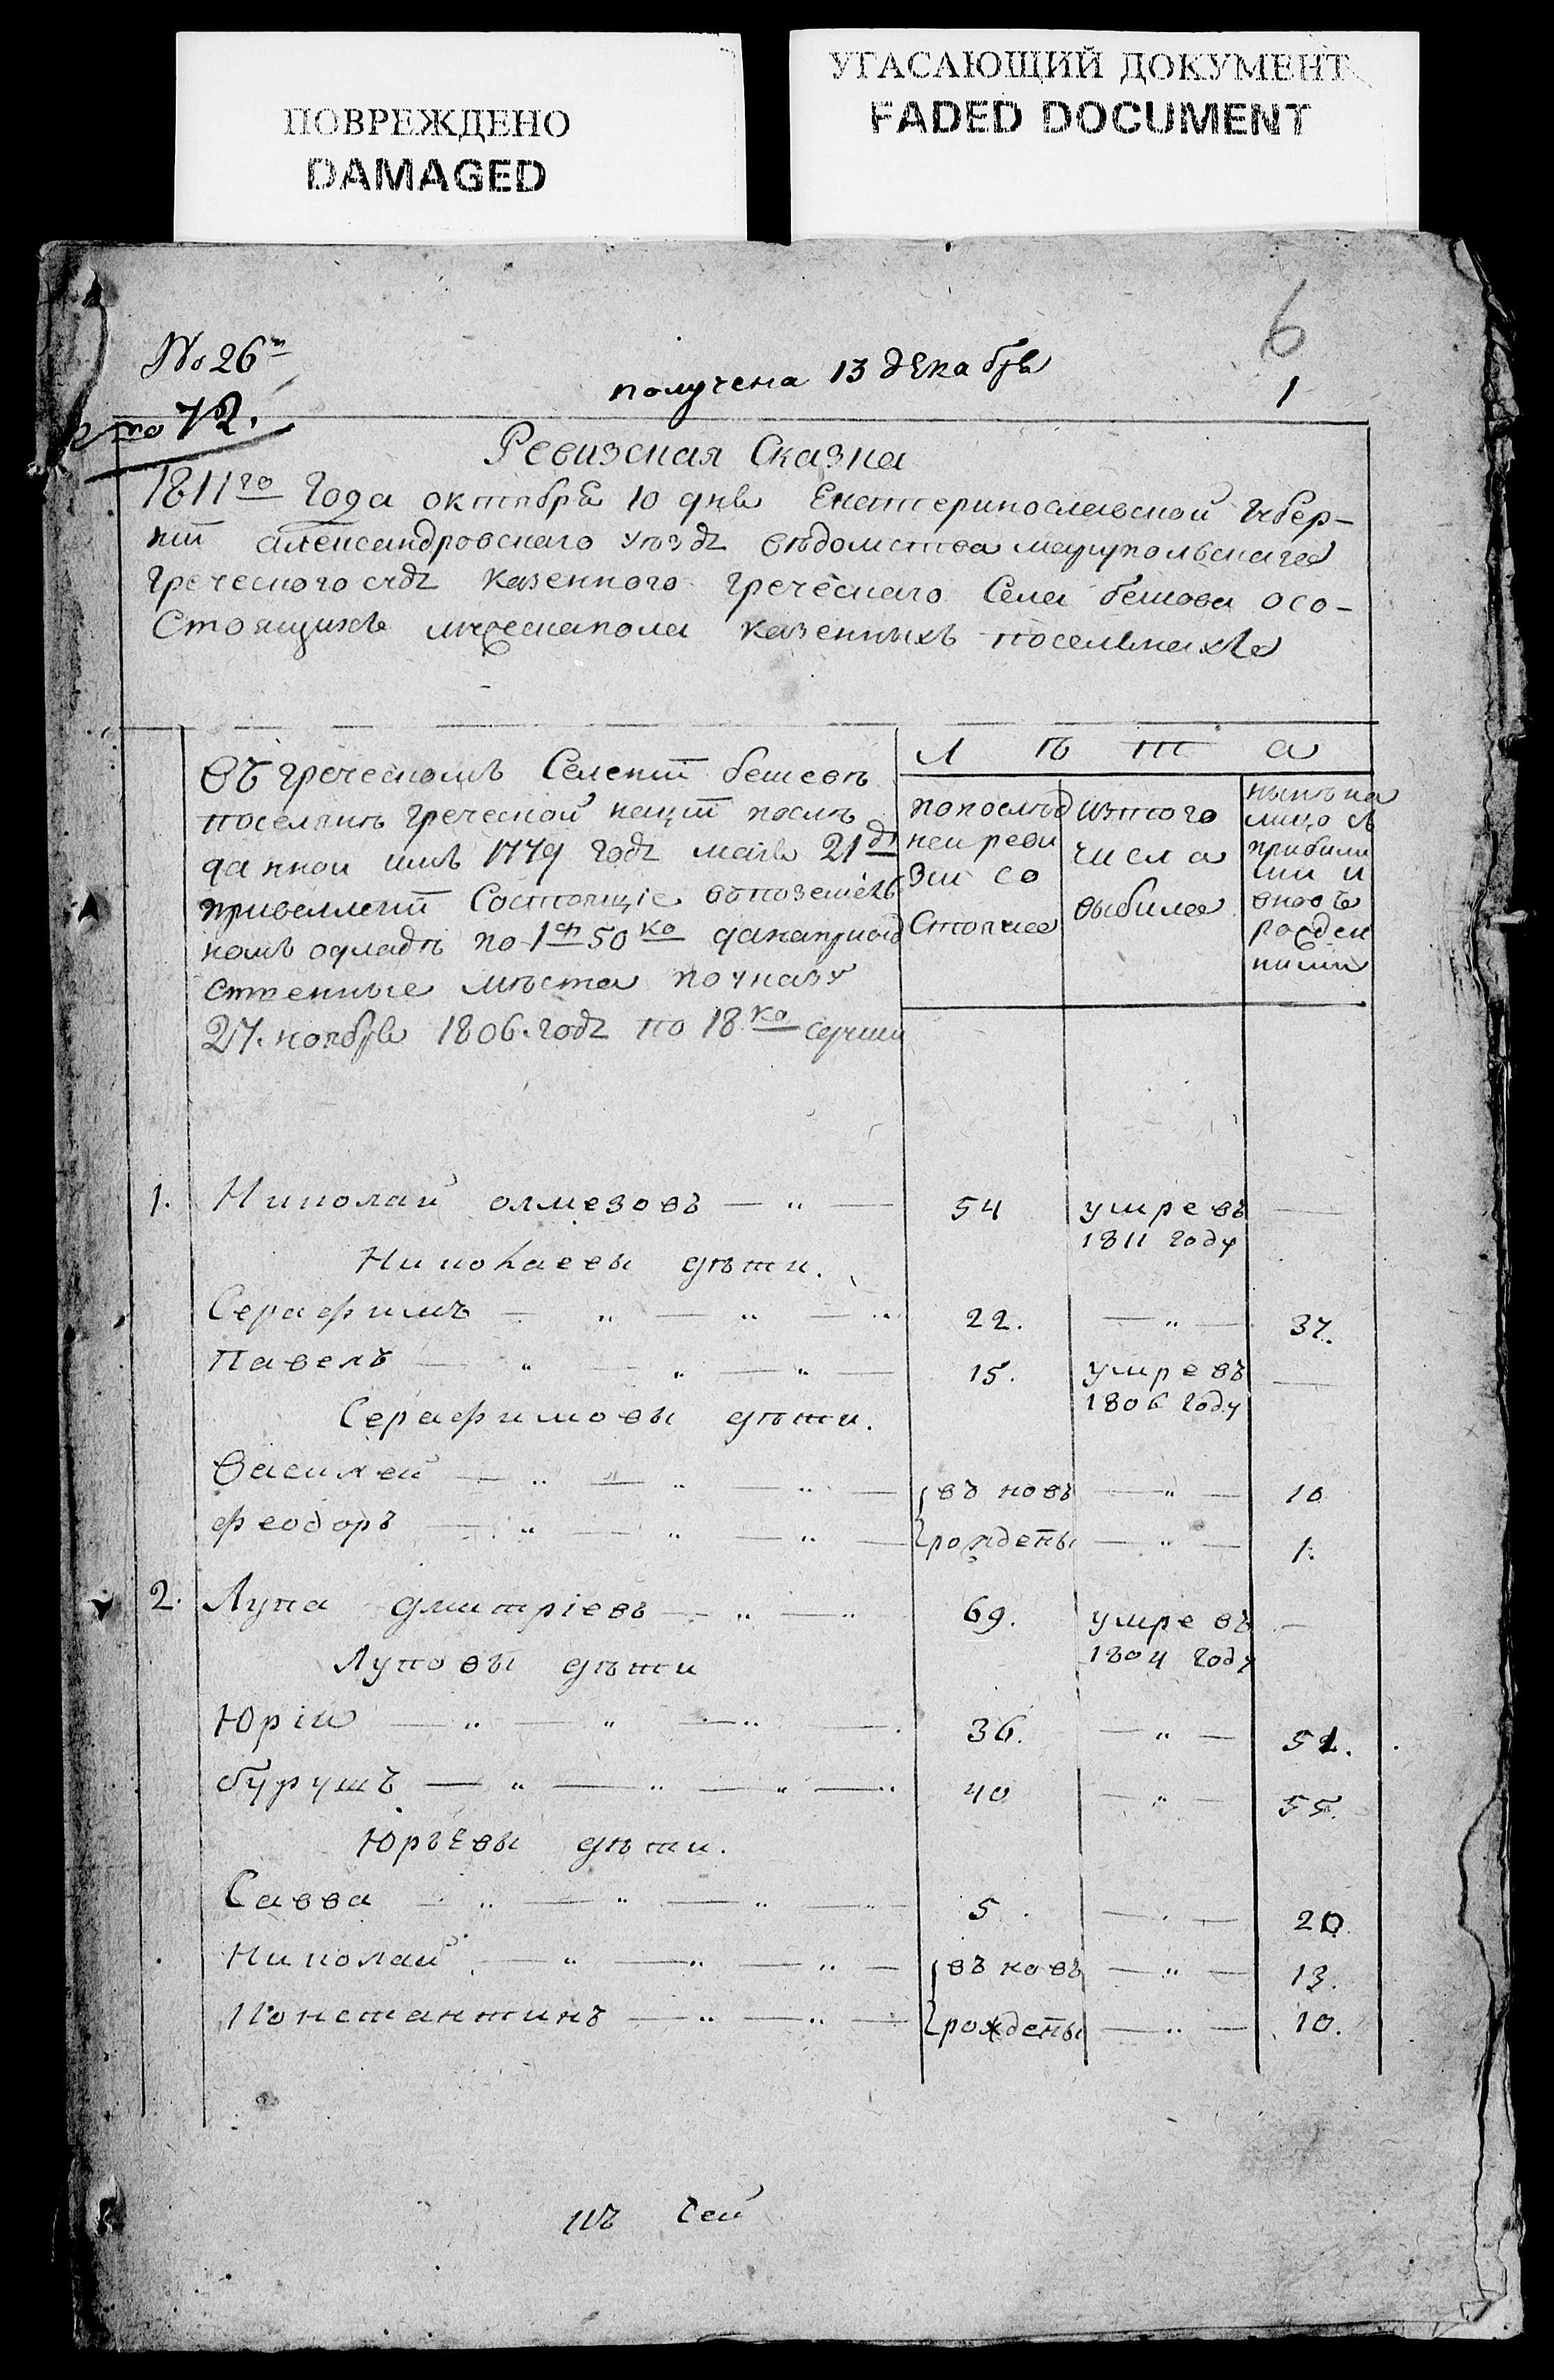 ПОВРЕЖДЕНО
DAMAGED
УГАСАЮЩИЙ ДОКУМЕНТ
FADED DOCUMENT
6
No 26
получена 13 декабря
1
no 72.
Ревизская Сказка
1811го Года октября 10 дня Екатеринославской Губер-
нiи александровскаго уезда ведомства мариупольскаго
Греческого суда казенного греческаго Села бешова осо-
стоящихъ мужескапола казенныхъ поселянахъ
Въ греческомъ Селенiи бешевѣ
поселянѣ греческой нацiи послѣ
данной имъ 1779 года маiя 21д
привеллегiи Состоящiе въпоземель
номъ окладѣ по 1 50 ко
ственные мѣста поуказу
27. ноября 1806. года по 18 ко
Л ѣ т а
попослѣд
ней реви
зiи со
стоялое
изтого
числа
выбыло
нынѣна
лицо съ
прибыли
ми и
вновь
рожден
ными
1. Николай олмезовъ — " — 54 умре въ —
1811 году
Николаевы дѣти.
Серафимъ — " — " — " 22. — " — 37.
Павелъ — " — " — " — 15. умре въ —
1806 году
Серафимовы дѣти.
Василей — " — " — " — въ новь — " — 10
Феодоръ — " — " — " — рождены — " — 1.
2. Лупа дмитрiевъ — " — " 69. умре въ —
1804 году
Луповы дѣти
Юрiй — " — " — " — 36. — " — 51.
бурушъ — " — " — " — " 40 — " — 55.
Юрьевы дѣти.
Савва — " — " — " — 5. — " — 20
Николай — " — " — " — въ новь — " — 13.
Константинъ — " — " — рождены — " — 10.
Къ Сей